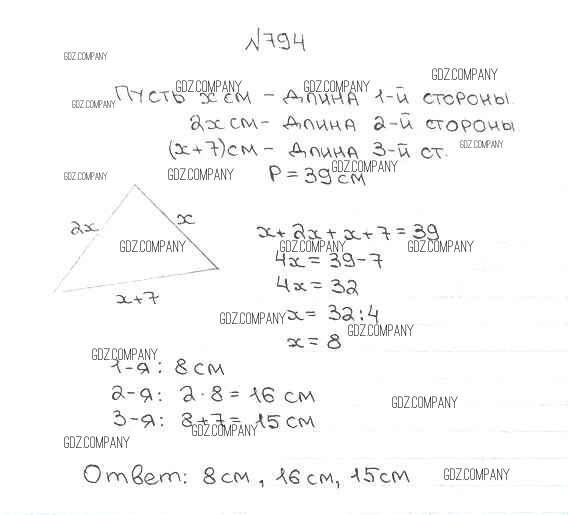 №794
GDZ.COMPANY
GDZ.COMPANY GDZ.COMPANY GDZ.COMPANY
GDZ.COMPANY
Пусть x см - длина 1-й стороны.
2x см - длина 2-й стороны.
(x+7) см - длина 3-й ст.
GDZ.COMPANY
GDZ.COMPANY GDZ.COMPANY GDZ.COMPANY
P = 39 см
2x
x
x+7
GDZ.COMPANY
x + 2x + x + 7 = 39
GDZ.COMPANY GDZ.COMPANY
4x = 39-7
4x = 32
GDZ.COMPANY
x = 32:4
GDZ.COMPANY
x = 8
GDZ.COMPANY
1-я: 8 см
2-я: 2·8 = 16 см
GDZ.COMPANY
3-я: 8+7 = 15 см
GDZ.COMPANY
GDZ.COMPANY
Ответ: 8 см, 16 см, 15 см
GDZ.COMPANY